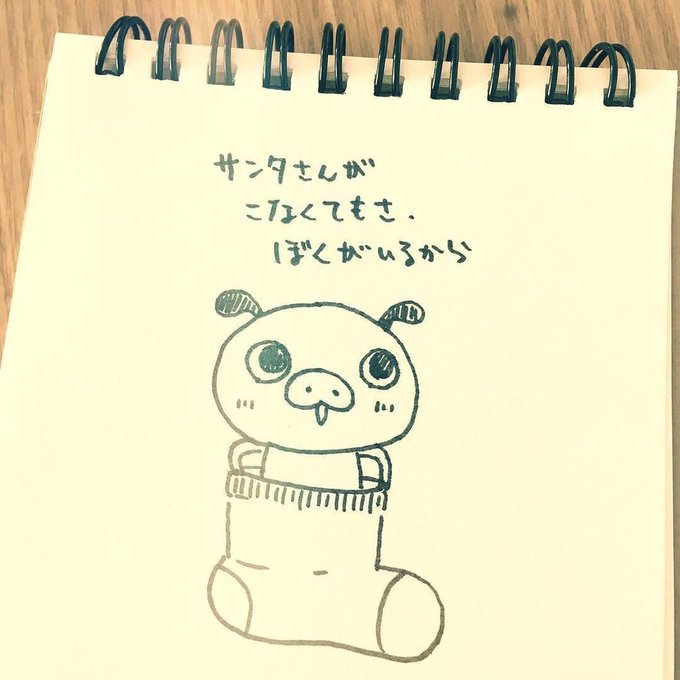 サンタさんが
こなくてもさ、
ぼくがいるから